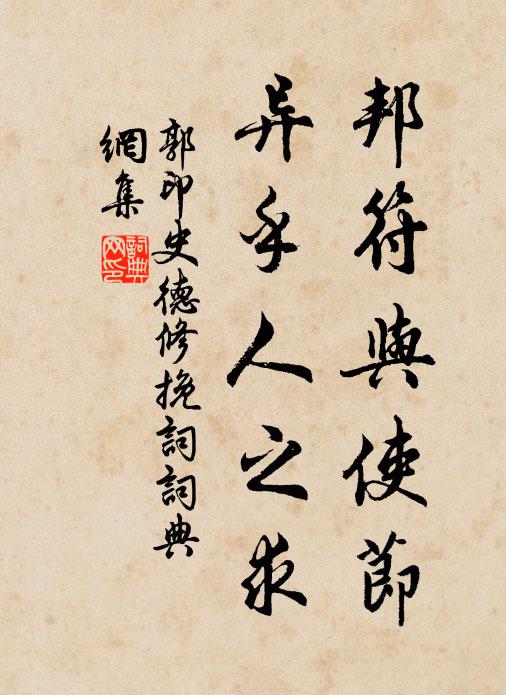 邦符與使節
异乎人之求
郭印史德修挽詞詞典
網集
詞典网印